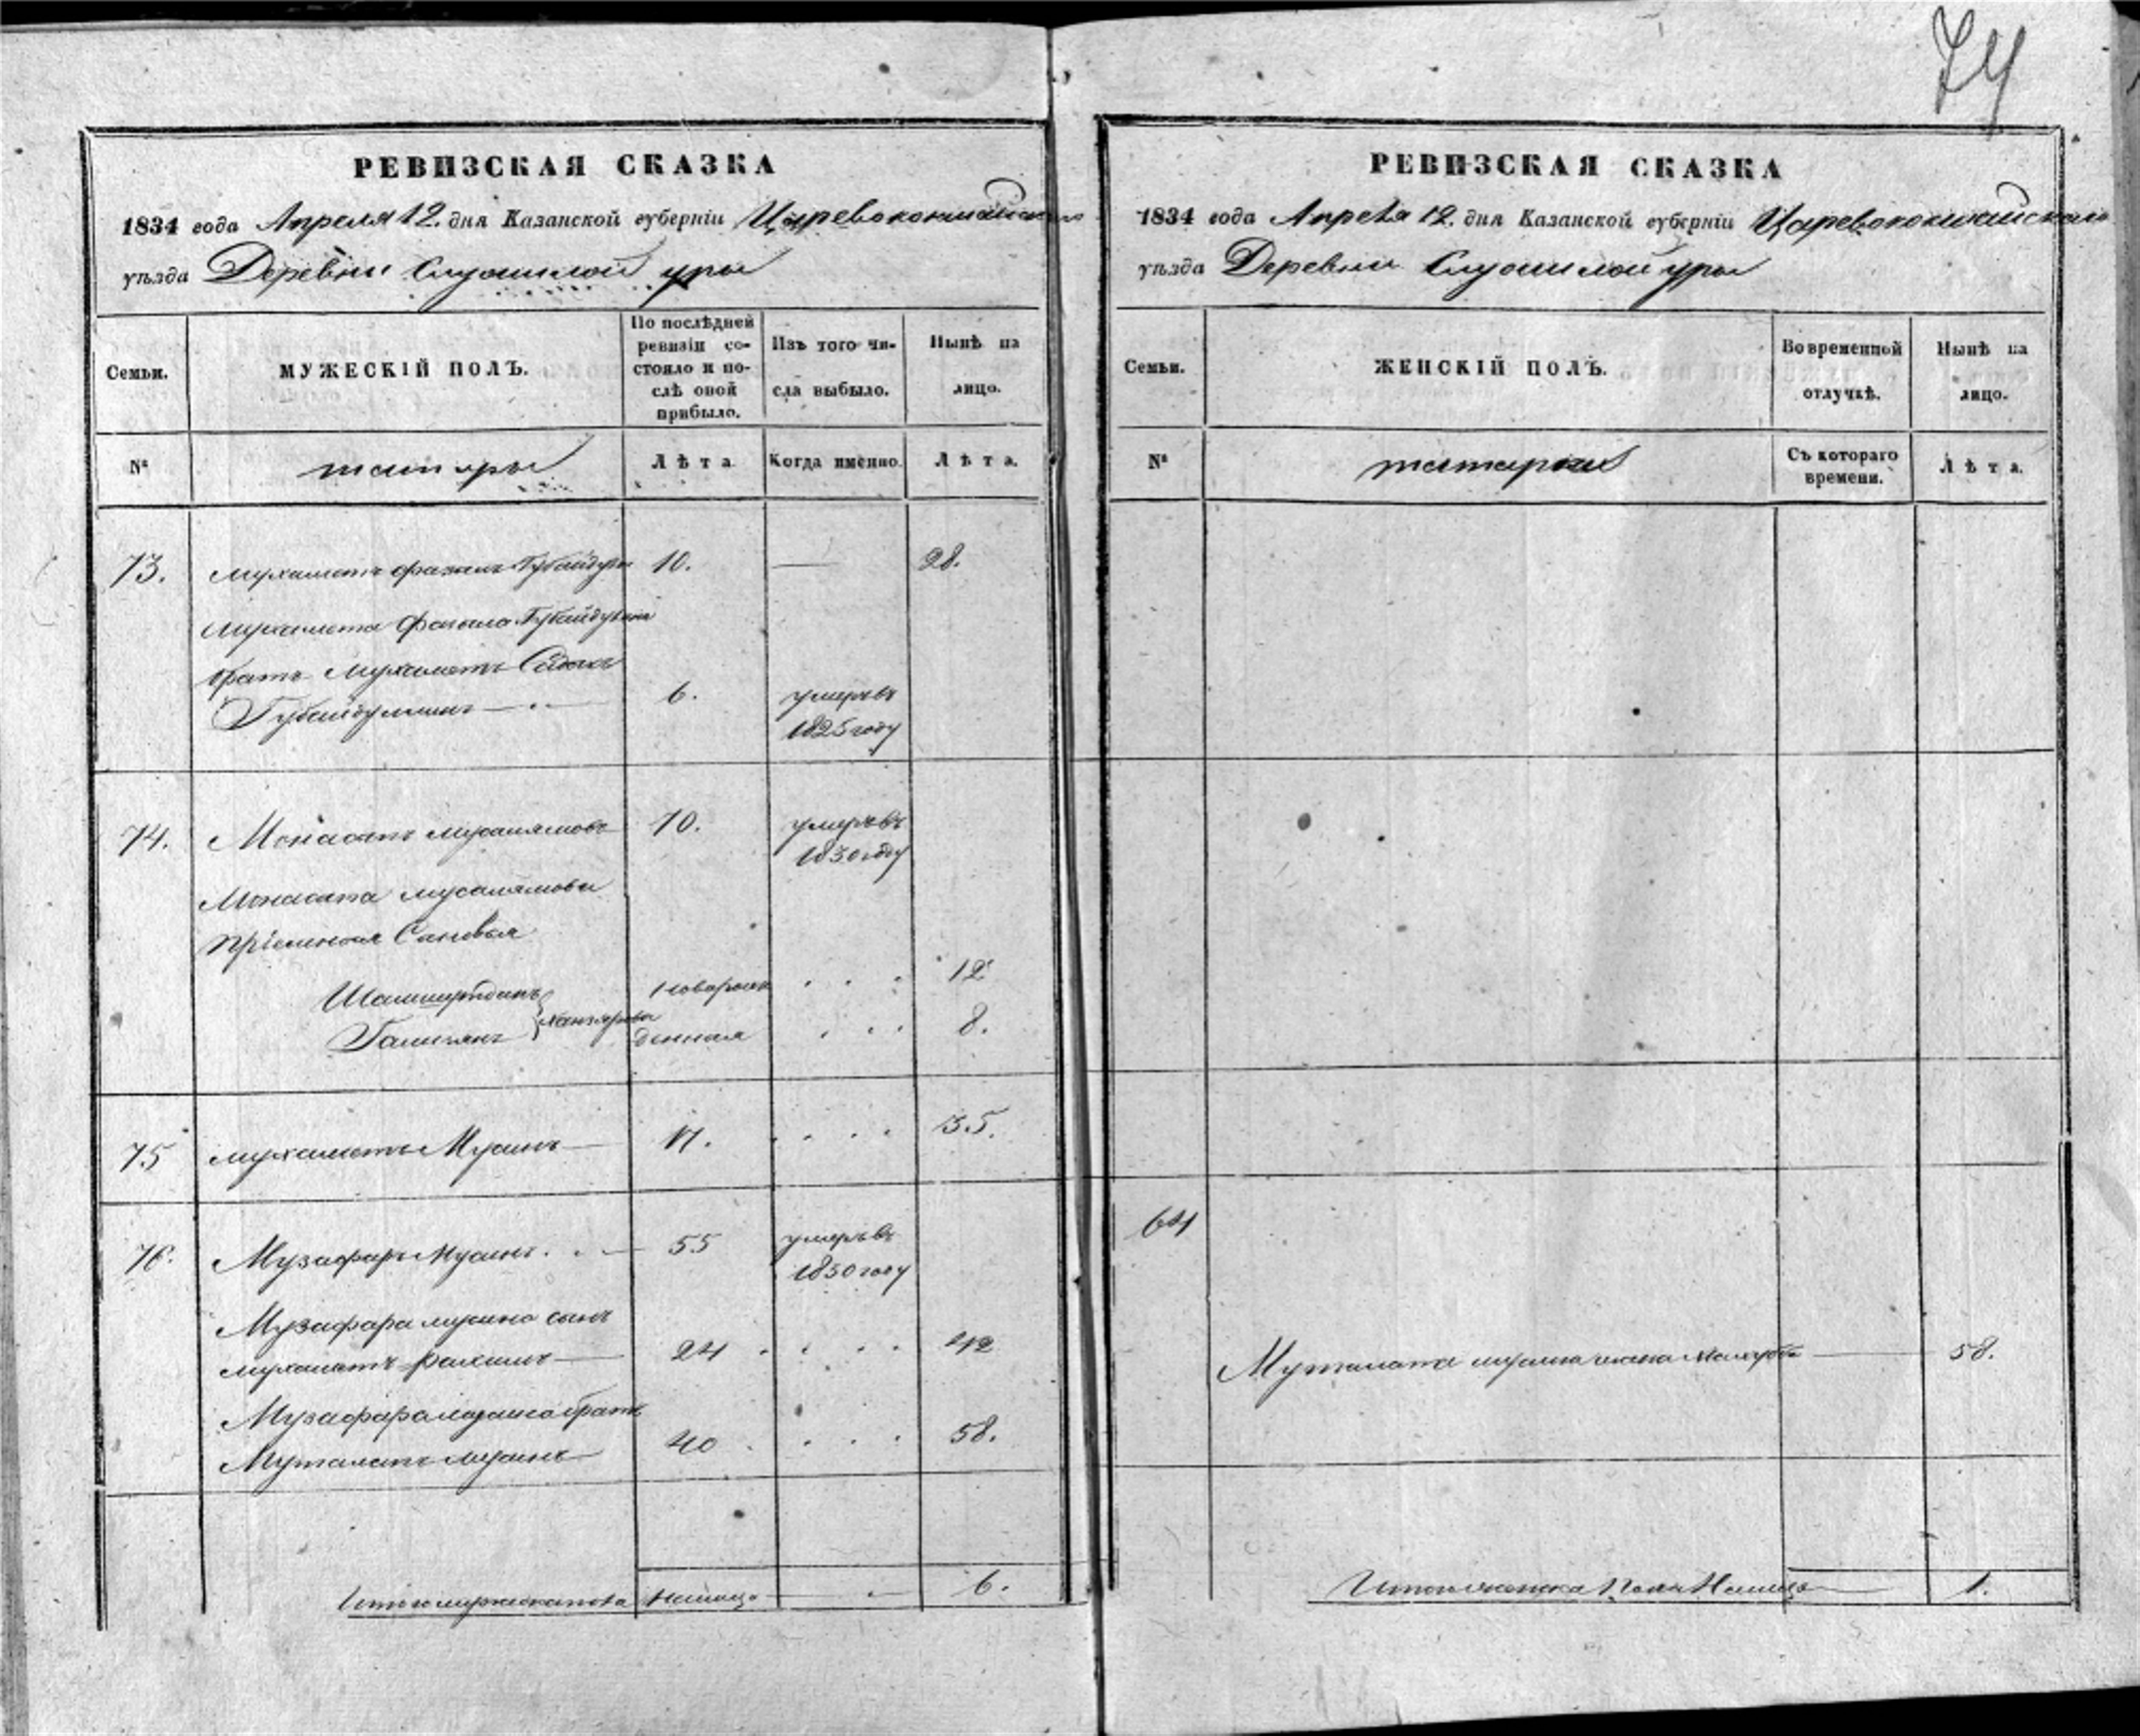 74
РЕВИЗСКАЯ СКАЗКА
1834 года Апреля 12. дня Казанской губерніи Царевококшайскаго
уѣзда Деревни уры
Семьи.
МУЖЕСКІЙ ПОЛЪ.
По послѣдней ревизіи состояло и послѣ оной прибыло.
Изъ того числа выбыло.
Нынѣ на лицо.
№
татары
Лѣта
Когда именно.
Лѣта.
73. Мухаметъ 10. — 28.
Мухамета
братъ Мухаметъ Садыкъ
Губайдуллинъ — 6. умеръ въ
1825 году
74. Мусалямовъ 70. умеръ въ
1830 году
Мусалямова
пріемныя Сыновья
новорож 12
Галиянъ денныя 8.
75 Мухаметъ Мусинъ — 17. 35.
76. Музафаръ Мусинъ. 55 умеръ въ
1830 году
Музафара Мусина сынъ
Мухаметъ Рахимъ — 24 42
Музафара Мусина братъ
Муталапъ Мусинъ — 40 58.
Итого мужеска пола налицо — 6.
РЕВИЗСКАЯ СКАЗКА
1834 года Апреля 12. дня Казанской губерніи Царевококшайскаго
уѣзда Деревни уры
Семьи.
ЖЕНСКІЙ ПОЛЪ.
Во временной отлучкѣ.
Нынѣ на лицо.
№
татарки
Съ котораго времени.
Лѣта.
64
Муталапа Мусина жена — 58.
Итого женска пола налицо — 1.